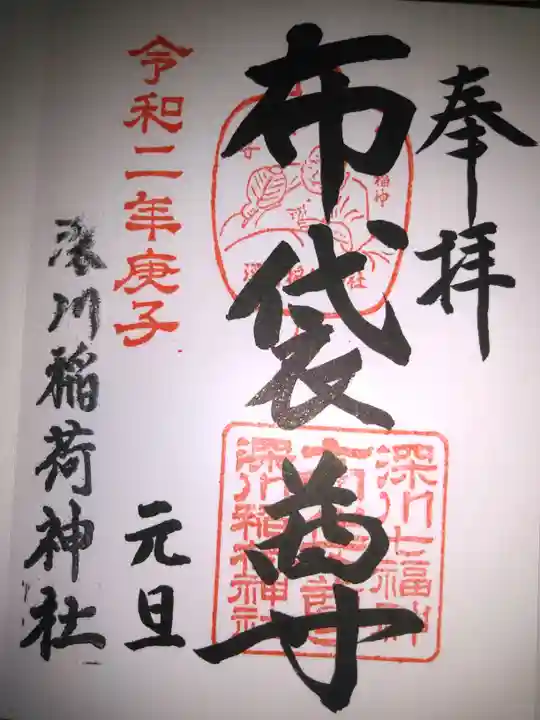 奉拝
布袋尊
令和二年庚子
元旦
深川稲荷神社
深川七福神
深川稲荷神社